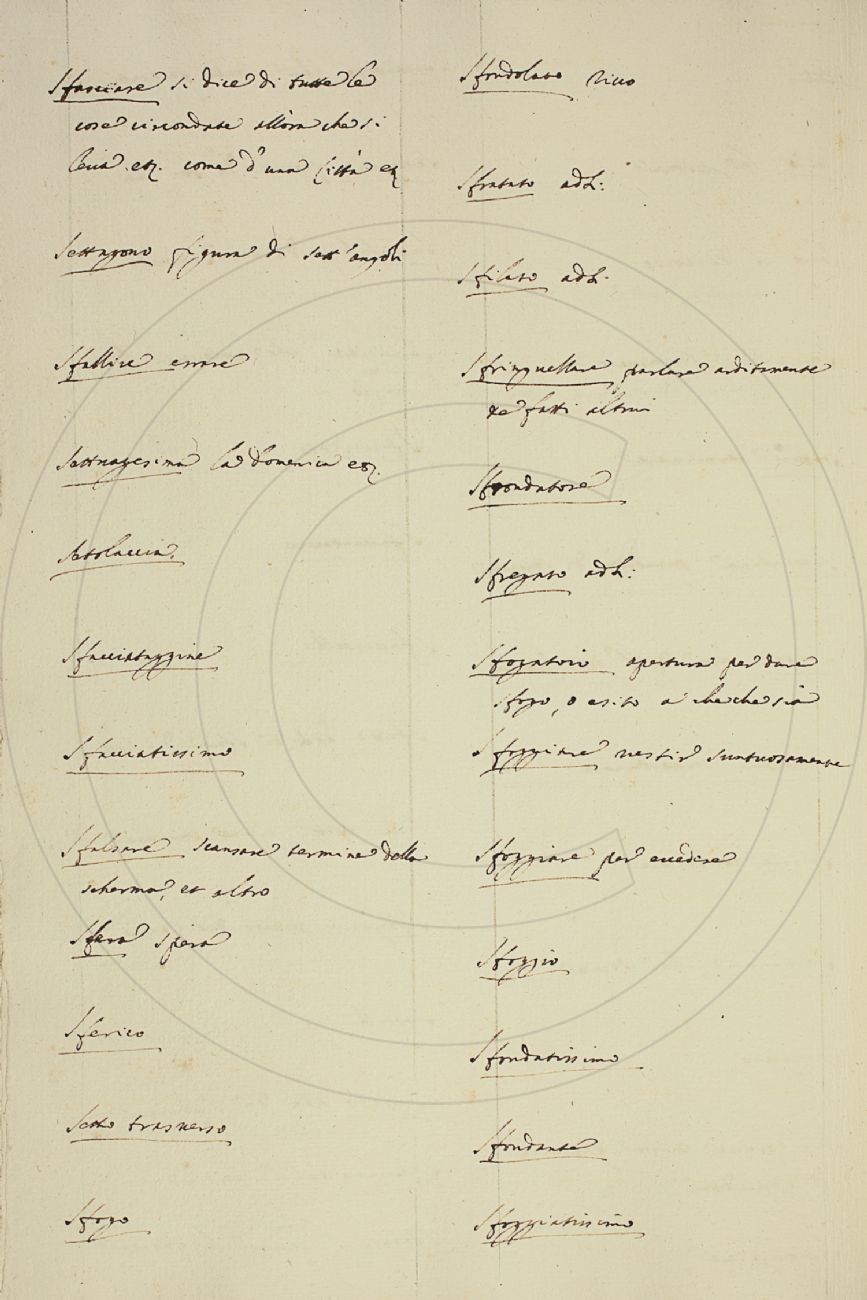 Sfasciare si dice di tutte le
cose circondate allora che si
leva etz. come d'una Città etz
Settagono figura di sett'angoli
Sfallire errare
Settuagesima la Domenica etz.
Setolaccia.
Sfacciataggine
Sfacciatissimo
Sfalsare scansare termine della
scherma, et altro
Sfera spera
Sferico
Setto trasverso
Sfogo
Sfondolato ricco
Sfratato add:
Sfilato add.
Sfringuellare parlare arditamente
de fatti altrui
Sfrondatore
Sfregato add:
Sfogatoio apertura per dare
sfogo, o esito a che che sia
Sfoggiare vestir suntuosamente
Sfoggiare per eccedere
Sfoggio
Sfondatissimo
Sfondante
Sfoggiatissimo